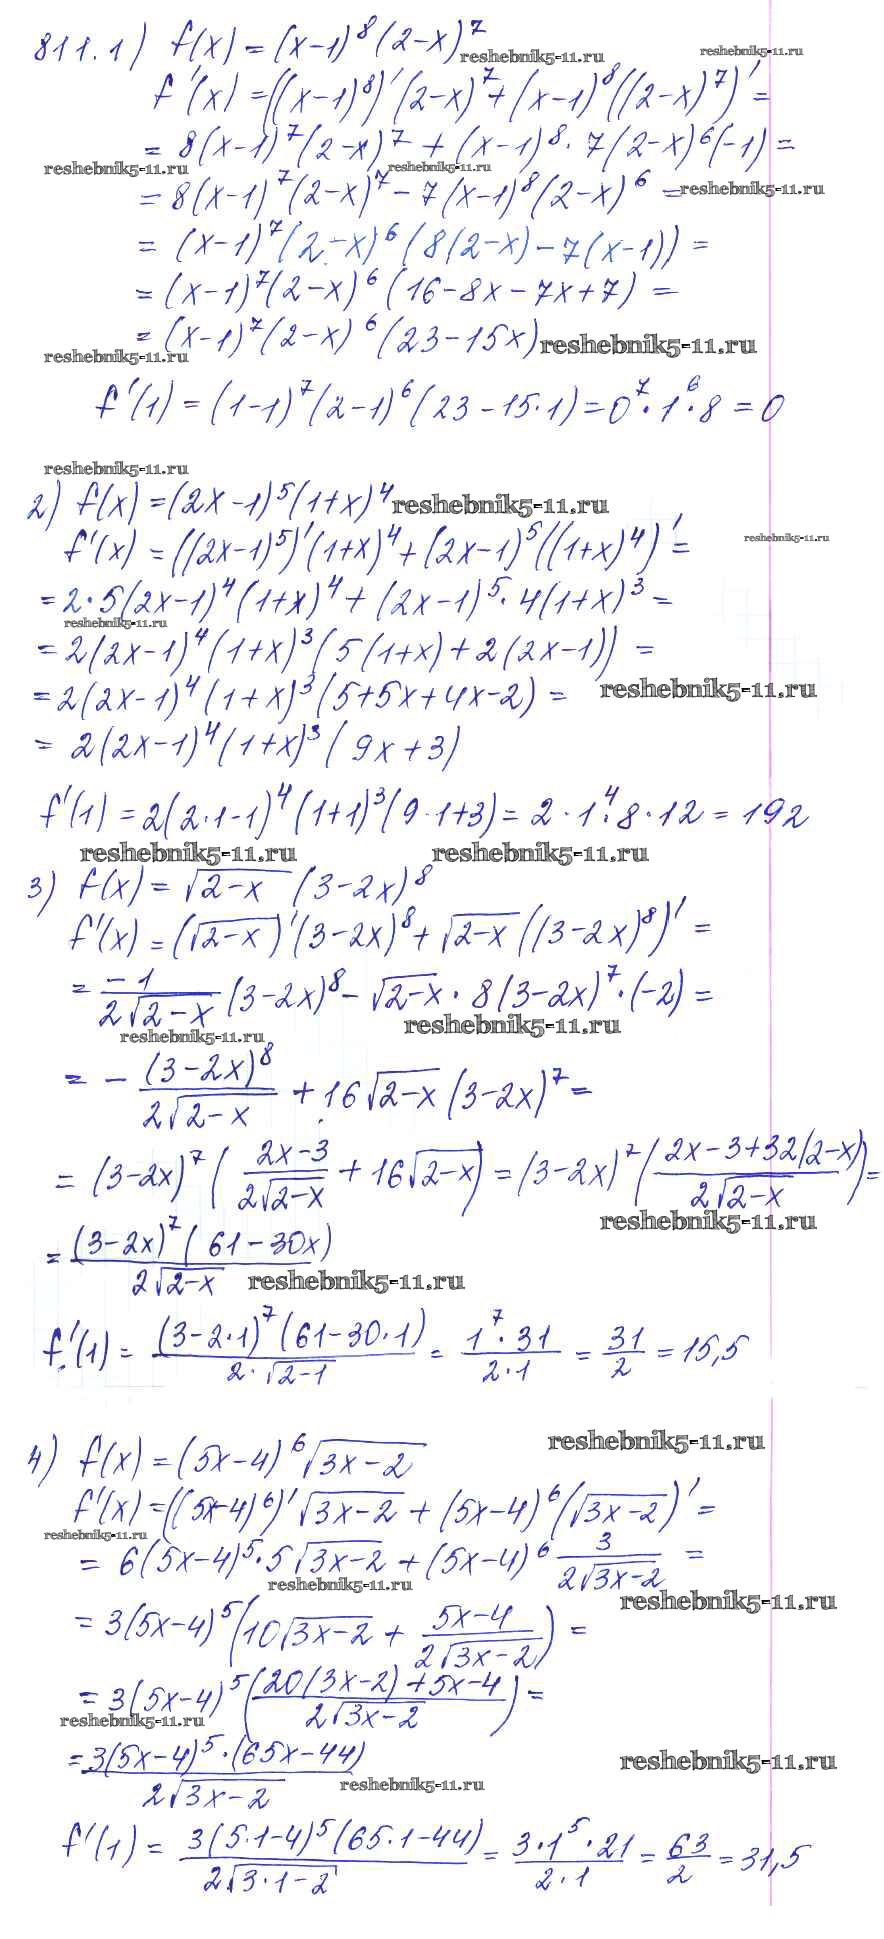 811.1) f(x) = (x-1)^8 (2-x)^7
reshebnik5-11.ru
reshebnik5-11.ru
f'(x) = ((x-1)^8)' (2-x)^7 + (x-1)^8 ((2-x)^7)' =
= 8(x-1)^7 (2-x)^7 + (x-1)^8 · 7(2-x)^6 (-1) =
reshebnik5-11.ru
reshebnik5-11.ru
= 8(x-1)^7 (2-x)^7 - 7(x-1)^8 (2-x)^6 =
reshebnik5-11.ru
= (x-1)^7 (2-x)^6 (8(2-x) - 7(x-1)) =
= (x-1)^7 (2-x)^6 (16-8x-7x+7) =
= (x-1)^7 (2-x)^6 (23-15x)
reshebnik5-11.ru
reshebnik5-11.ru
f'(1) = (1-1)^7 (2-1)^6 (23-15·1) = 0^7 · 1^6 · 8 = 0
reshebnik5-11.ru
2) f(x) = (2x-1)^5 (1+x)^4
reshebnik5-11.ru
f'(x) = ((2x-1)^5)' (1+x)^4 + (2x-1)^5 ((1+x)^4)' =
reshebnik5-11.ru
= 2·5(2x-1)^4 (1+x)^4 + (2x-1)^5 · 4(1+x)^3 =
reshebnik5-11.ru
= 2(2x-1)^4 (1+x)^3 (5(1+x) + 2(2x-1)) =
= 2(2x-1)^4 (1+x)^3 (5+5x+4x-2) =
reshebnik5-11.ru
= 2(2x-1)^4 (1+x)^3 (9x+3)
f'(1) = 2(2·1-1)^4 (1+1)^3 (9·1+3) = 2·1^4·8·12 = 192
reshebnik5-11.ru
reshebnik5-11.ru
3) f(x) = √(2-x) (3-2x)^8
f'(x) = (√(2-x))' (3-2x)^8 + √(2-x) ((3-2x)^8)' =
= -1/(2√(2-x)) (3-2x)^8 - √(2-x) · 8(3-2x)^7 · (-2) =
reshebnik5-11.ru
reshebnik5-11.ru
= - (3-2x)^8/(2√(2-x)) + 16√(2-x) (3-2x)^7 =
= (3-2x)^7 ((2x-3)/(2√(2-x)) + 16√(2-x)) = (3-2x)^7 ((2x-3+32(2-x))/(2√(2-x))) =
reshebnik5-11.ru
= (3-2x)^7 (61-30x)/(2√(2-x))
reshebnik5-11.ru
f'(1) = (3-2·1)^7 (61-30·1)/(2·√(2-1)) = 1^7·31/(2·1) = 31/2 = 15,5
4) f(x) = (5x-4)^6 √(3x-2)
reshebnik5-11.ru
f'(x) = ((5x-4)^6)' √(3x-2) + (5x-4)^6 (√(3x-2))' =
reshebnik5-11.ru
= 6(5x-4)^5 · 5√(3x-2) + (5x-4)^6 3/(2√(3x-2)) =
reshebnik5-11.ru
reshebnik5-11.ru
= 3(5x-4)^5 (10√(3x-2) + (5x-4)/(2√(3x-2))) =
= 3(5x-4)^5 ((20(3x-2)+5x-4)/(2√(3x-2))) =
reshebnik5-11.ru
= 3(5x-4)^5 · (65x-44)/(2√(3x-2))
reshebnik5-11.ru
reshebnik5-11.ru
f'(1) = 3(5·1-4)^5 (65·1-44)/(2√(3·1-2)) = 3·1^5·21/(2·1) = 63/2 = 31,5